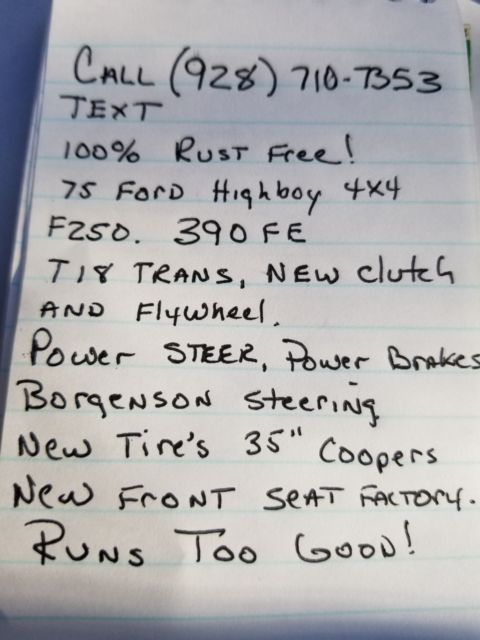 CALL (928) 710-7353
TEXT
100% RUST Free!
75 FORD Highboy 4x4
F250. 390 FE
T18 TRANS, NEW clutch
AND Flywheel.
Power STEER, Power Brakes
Borgenson steering
New Tire's 35" Coopers
New FRONT SEAT FACTORY.
RUNS TOO GOOD!